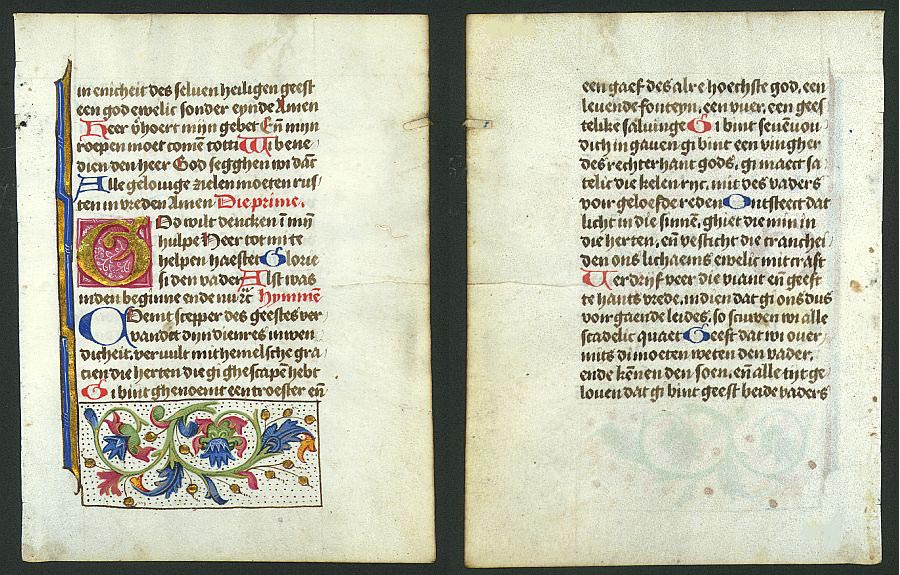 in enicheit des seluen heiligen geest
een god ewelic sonder eynde Amen
Heer v̂hoert mijn gebet Eñ mijn
roepen moet comē totti Wi bene
dien den heer God segghen wi dāc
Alle gelouige zielen moeten rus
ten in vreden Amen Die prime.
God wilt dencken ī mijn
hulpe Heer tot mi te
helpen haestet Glorie
si den vader Alst was
inden beginne ende nu Hymmē
Coemt stepper des geestes ver
vandet dijn dienres in wen
dicheit, ver vult mit hemelsche gra
cien die herten die gi ghescapen hebt
Gi bint ghenoemt een troester eñ
een gaef des alre hoechste god, een
leuende fonteyn, een vuer, een gees
telike saluinge Gi bint seuēuou
dich in gauen gi bint een vingher
des rechter hant gods, gi maect sa
telic die kelen ryc, mit des vaders
voir geloefde reden Ontsteect dat
licht in die sinnē, ghiet die min in
die herten, eñ vesticht die cranchei
den ons lichaems ewelic mit craft
Verdrijf veer die viant eñ geeft
te hants vrede, indien dat gi ons dus
voir gaende leides, so scuwen wi alle
scadelic quaet Geeft dat wi ouer
mits di moeten weten den vader,
ende kēnen den soen, eñ alle tijt ge
louen dat gi bint geest beide vaders